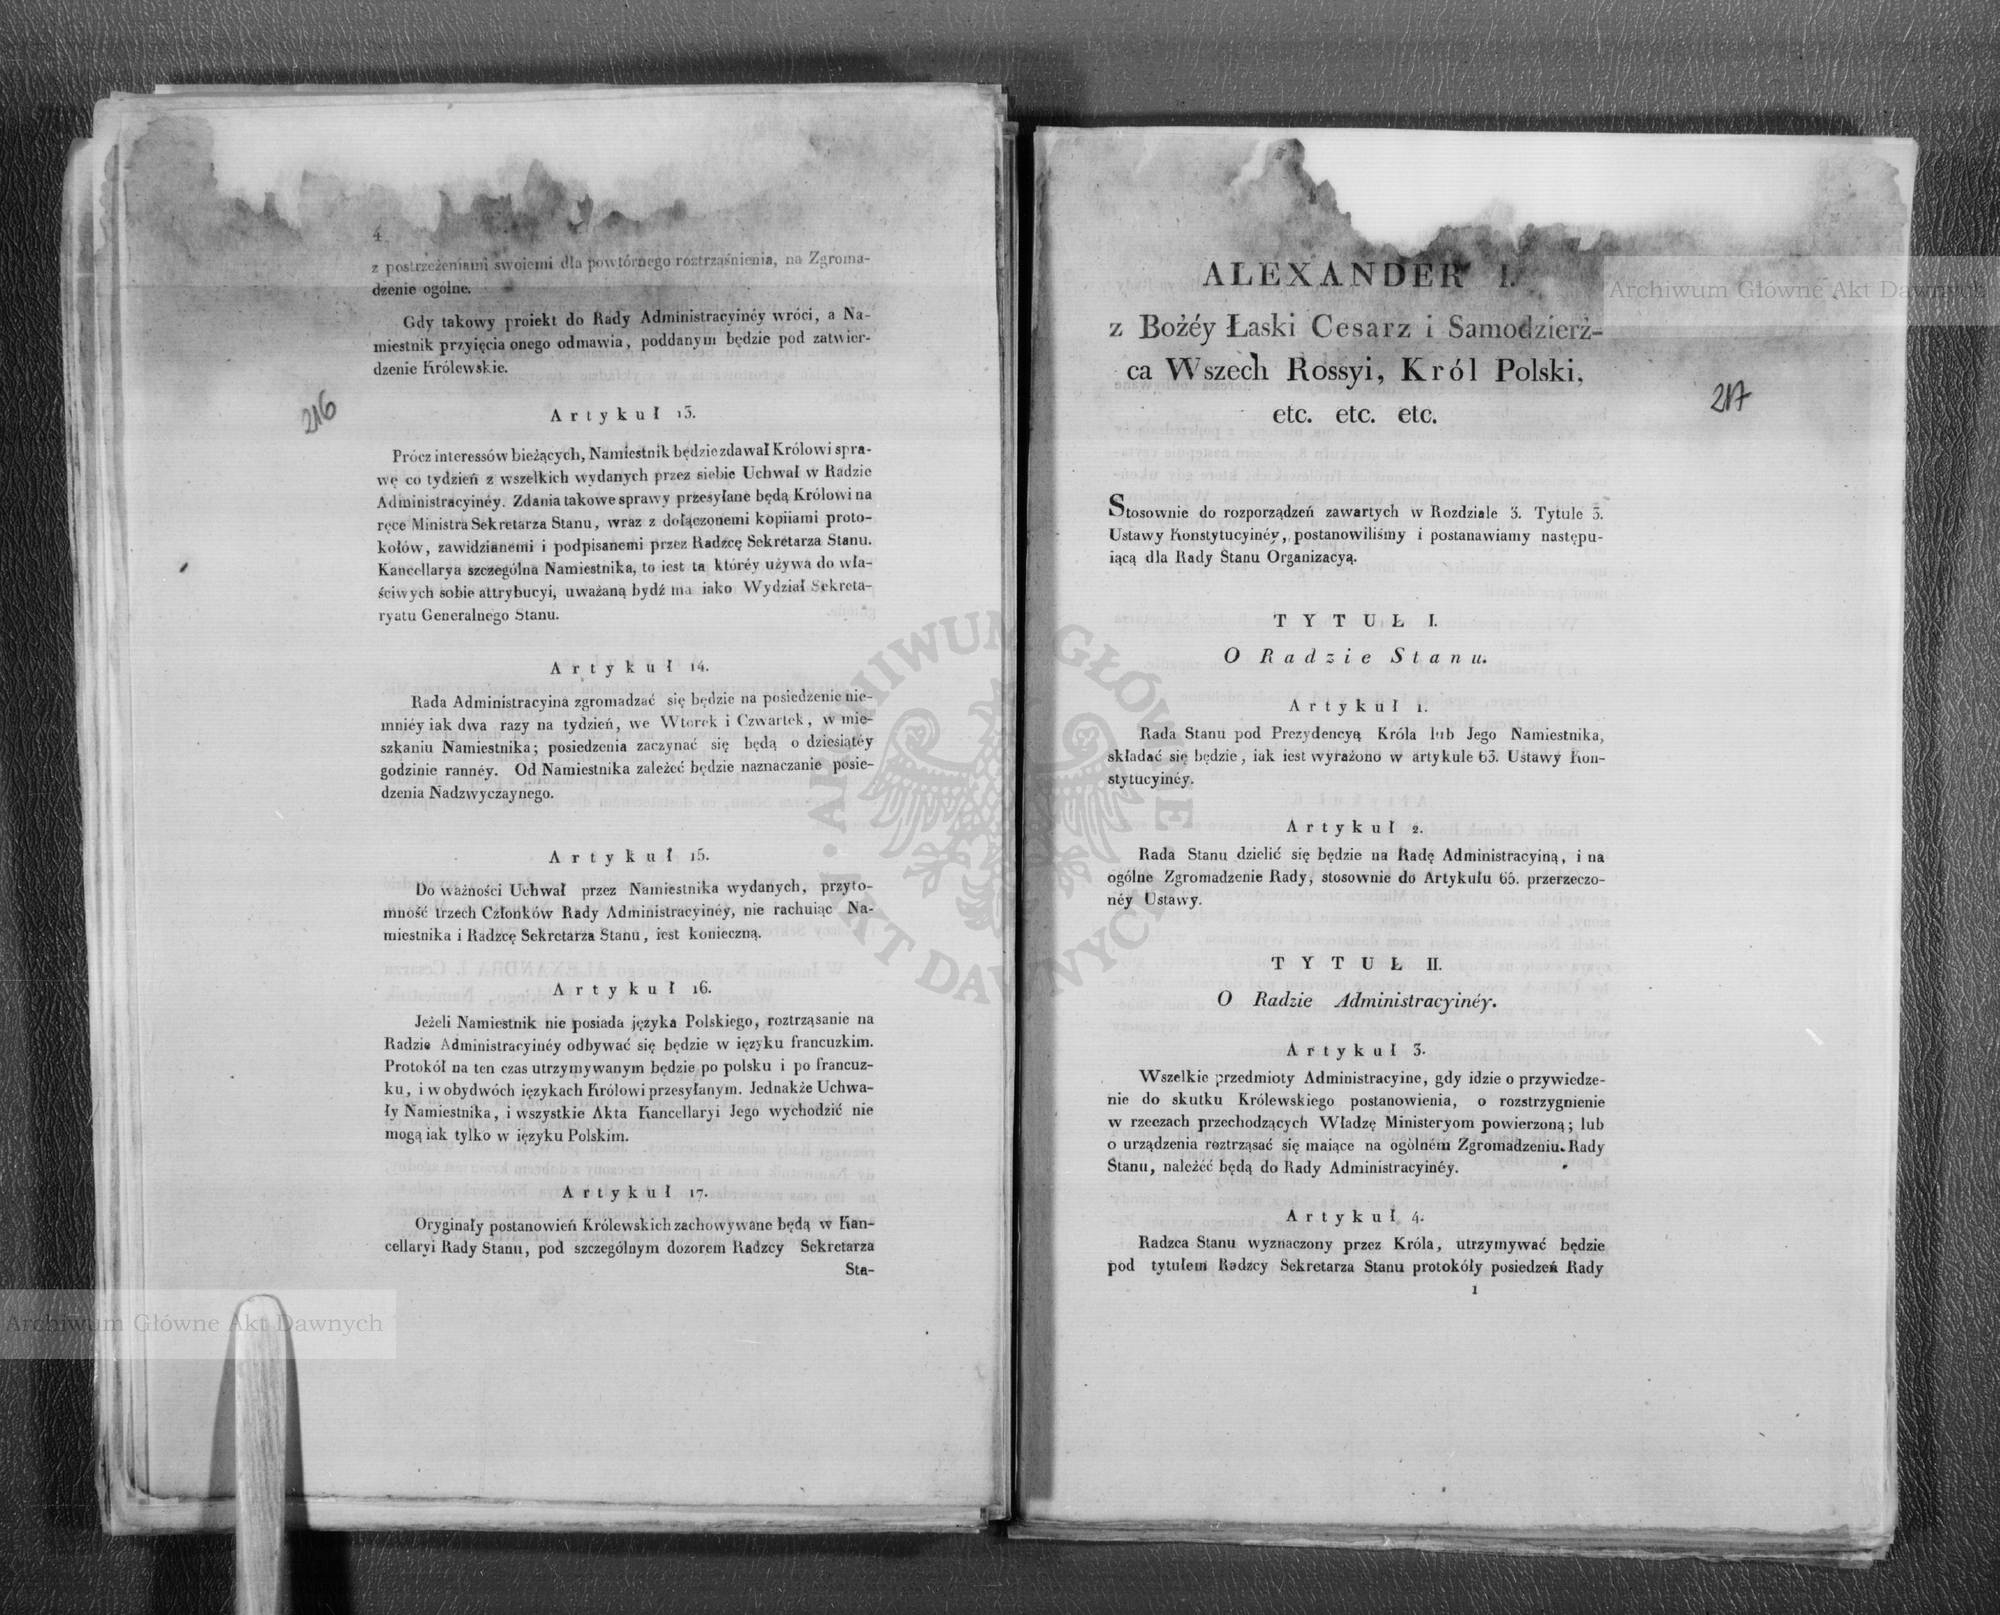 4
z postrzeżeniami swoiemi dla powtórnego roztrząśnienia, na Zgroma-
dzenie ogolne.
Gdy takowy proiekt do Rady Administracyinéy wróci, a Na-
miestnik przyięcia onego odmawia, poddanym będzie pod zatwier-
dzenie Królewskie.
216
Artykuł 13.
Prócz interessów bieżących, Namiestnik będzie zdawał Królowi spra-
wę co tydzień z wszelkich wydanych przez siebie Uchwał w Radzie
Administracyinéy. Zdania takowe sprawy przesyłane będą Królowi na
ręce Ministra Sekretarza Stanu, wraz z dołączonemi kopiiami proto-
kołów, zawidzianemi i podpisanemi przez Radzcę Sekretarza Stanu.
Kancellarya szczególna Namiestnika, to iest ta któréy używa do wła-
ściwych sobie attrybucyi, uważaną bydź ma iako Wydział Sekreta-
ryatu Generalnego Stanu.
Artykuł 14.
Rada Administracyina zgromadzać się będzie na posiedzenie nie-
mniéy iak dwa razy na tydzień, we Wtorek i Czwartek, w mie-
szkaniu Namiestnika; posiedzenia zaczynać się będą o dziesiątéy
godzinie rannéy. Od Namiestnika zależeć będzie naznaczanie posie-
dzenia Nadzwyczaynego.
Artykuł 15.
Do ważności Uchwał przez Namiestnika wydanych, przyto-
mność trzech Członków Rady Administracyinéy, nie rachuiąc Na-
miestnika i Radzcę Sekretarza Stanu, iest konieczną.
Artykuł 16.
Jeżeli Namiestnik nie posiada języka Polskiego, roztrząsanie na
Radzie Administracyinéy odbywać się będzie w ięzyku francuzkim.
Protokół na ten czas utrzymywanym będzie po polsku i po francuz-
ku, i w obydwóch ięzykach Królowi przesyłanym. Jednakże Uchwa-
ły Namiestnika, i wszystkie Akta Kancellaryi Jego wychodzić nie
mogą iak tylko w ięzyku Polskim.
Artykuł 17.
Oryginały postanowień Królewskich zachowywane będą w Kan-
cellaryi Rady Stanu, pod szczególnym dozorem Radzcy Sekretarza
Sta-
ALEXANDER I.
z Bożéy Łaski Cesarz i Samodzierż-
ca Wszech Rossyi, Król Polski,
etc. etc. etc.
217
Stosownie do rozporządzeń zawartych w Rozdziale 3. Tytule 3.
Ustawy Konstytucyinéy, postanowiliśmy i postanawiamy następu-
iącą dla Rady Stanu Organizacyą.
TYTUŁ I.
O Radzie Stanu.
Artykuł 1.
Rada Stanu pod Prezydencyą Króla lub Jego Namiestnika,
składać się będzie, iak iest wyrażono w artykule 63. Ustawy Kon-
stytucyinéy.
Artykuł 2.
Rada Stanu dzielić się będzie na Radę Administracyiną, i na
ogólne Zgromadzenie Rady, stosownie do Artykułu 65. przerzeczo-
néy Ustawy.
TYTUŁ II.
O Radzie Administracyinéy.
Artykuł 3.
Wszelkie przedmioty Administracyine, gdy idzie o przywiedze-
nie do skutku Królewskiego postanowienia, o rozstrzygnienie
w rzeczach przechodzących Władzę Ministeryom powierzoną; lub
o urządzenia roztrząsać się maiące na ogólném Zgromadzeniu Rady
Stanu, należéć będą do Rady Administracyinéy.
Artykuł 4.
Radzca Stanu wyznaczony przez Króla, utrzymywać będzie
pod tytułem Radzcy Sekretarza Stanu protokóły posiedzeń Rady
1
Archiwum Główne Akt Dawnych
Archiwum Główne Akt Dawnych
ARCHIWUM GŁÓWNE AKT DAWNYCH